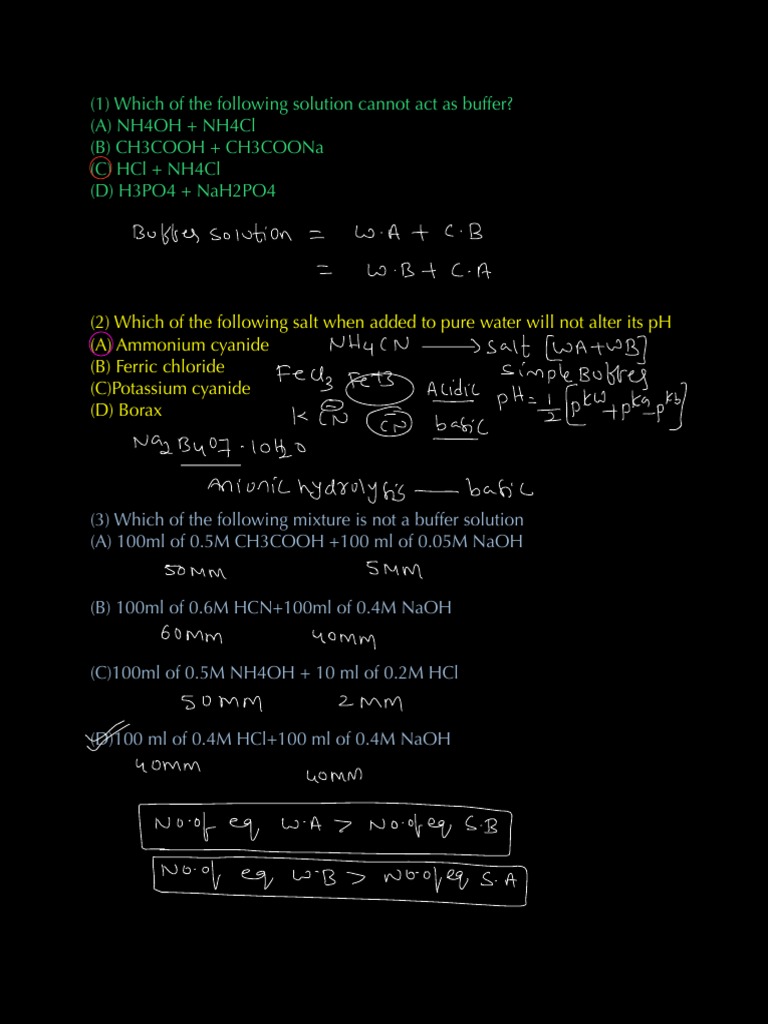 (1) Which of the following solution cannot act as buffer?
(A) NH4OH + NH4Cl
(B) CH3COOH + CH3COONa
(C) HCl + NH4Cl
(D) H3PO4 + NaH2PO4
Buffer solution = W.A + C.B
= W.B + C.A
(2) Which of the following salt when added to pure water will not alter its pH
(A) Ammonium cyanide NH4CN → Salt [WA+WB]
(B) Ferric chloride FeCl3 Fe+3 Acidic Simple Buffer
(C)Potassium cyanide K CN⊖ CN⊖ basic pH = 1/2 [pKw + pKa - pKb]
(D) Borax
Na2B4O7·10H2O
Anionic hydrolysis — basic
(3) Which of the following mixture is not a buffer solution
(A) 100ml of 0.5M CH3COOH +100 ml of 0.05M NaOH
50mM 5mM
(B) 100ml of 0.6M HCN+100ml of 0.4M NaOH
60mM 40mM
(C)100ml of 0.5M NH4OH + 10 ml of 0.2M HCl
50mM 2mM
(D)100 ml of 0.4M HCl+100 ml of 0.4M NaOH
40mM 40mM
No.of eq W.A > No.of eq S.B
No.of eq W.B > No.of eq S.A